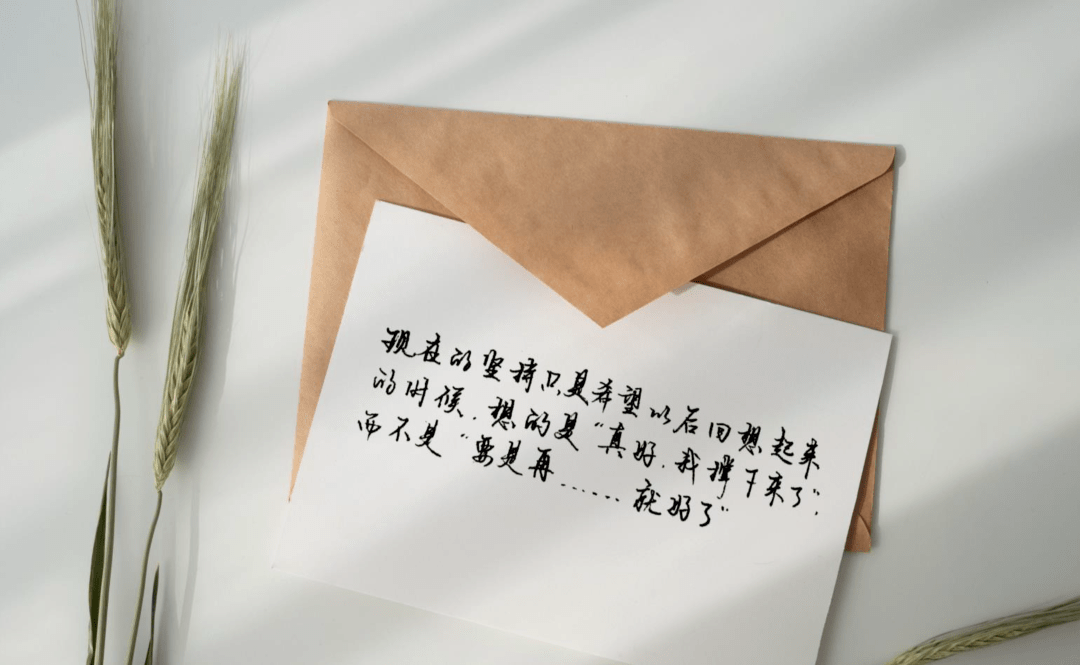 现在的坚持只是希望以后回想起来
的时候，想的是“真好，我撑下来了”，
而不是“要是再……就好了”